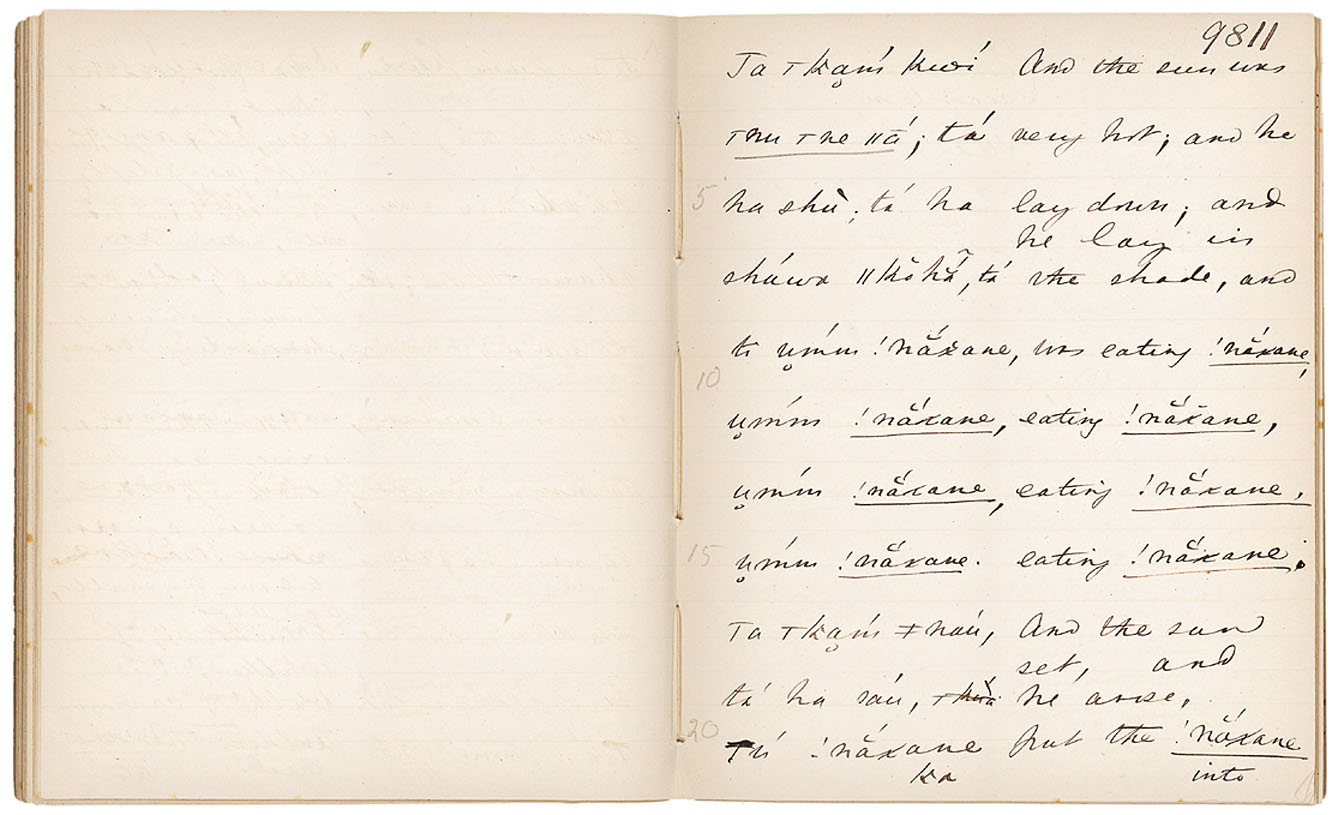 9811
Ta ⊤kạḿ kwí And the sun was
⊤nu ⊤ne ǁā́; tá very hot; and he
5 ha shù; tá ha lay down; and
he lay in
sháwa ǁkŏhã́, tá the shade, and
10 ti ụḿm !nắxane, was eating !nắxane,
ụḿm !nắxane, eating !nắxane,
ụḿm !nắxane, eating !nắxane,
15 ụḿm !nắxane. eating !nắxane;
Ta ⊤kạḿ ǂnáu, And the sun
set, and
tá ha sáu, he arose,
20 !nắxane put the !nắxane
ka into